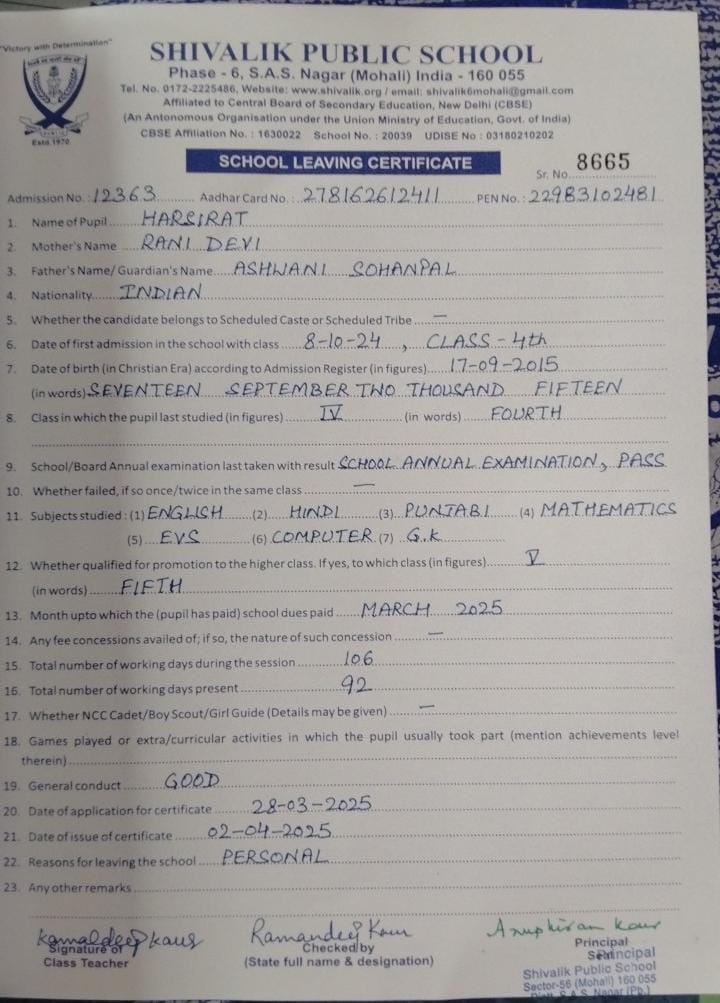 "Victory with Determination"
SHIVALIK PUBLIC SCHOOL
Phase - 6, S.A.S. Nagar (Mohali) India - 160 055
Tel. No. 0172-2225486, Website: www.shivalik.org / email: shivalik6mohali@gmail.com
Affiliated to Central Board of Secondary Education, New Delhi (CBSE)
(An Antonomous Organisation under the Union Ministry of Education, Govt. of India)
Estd.1970
CBSE Affiliation No. : 1630022 School No. : 20039 UDISE No : 03180210202
SCHOOL LEAVING CERTIFICATE
Sr. No. 8665
Admission No. : 12363 Aadhar Card No. : 278162612411 PEN No. : 22983102481
1. Name of Pupil HARSIRAT
2. Mother's Name RANI DEVI
3. Father's Name/ Guardian's Name ASHWANI SOHANPAL
4. Nationality INDIAN
5. Whether the candidate belongs to Scheduled Caste or Scheduled Tribe —
6. Date of first admission in the school with class 8-10-24, CLASS-4th
7. Date of birth (in Christian Era) according to Admission Register (in figures) 17-09-2015
(in words) SEVENTEEN SEPTEMBER TWO THOUSAND FIFTEEN
8. Class in which the pupil last studied (in figures) IV (in words) FOURTH
9. School/Board Annual examination last taken with result SCHOOL ANNUAL EXAMINATION, PASS
10. Whether failed, if so once/twice in the same class —
11. Subjects studied : (1) ENGLISH (2) HINDI (3) PUNJABI (4) MATHEMATICS
(5) EVS (6) COMPUTER (7) G.K
12. Whether qualified for promotion to the higher class. If yes, to which class (in figures) V
(in words) FIFTH
13. Month upto which the (pupil has paid) school dues paid MARCH 2025
14. Any fee concessions availed of; if so, the nature of such concession —
15. Total number of working days during the session 106
16. Total number of working days present 92
17. Whether NCC Cadet/Boy Scout/Girl Guide (Details may be given) —
18. Games played or extra/curricular activities in which the pupil usually took part (mention achievements level
therein)
19. General conduct GOOD
20. Date of application for certificate 28-03-2025
21. Date of issue of certificate 02-04-2025
22. Reasons for leaving the school PERSONAL
23. Any other remarks
Kamaldeep kaur Ramandeep Kaur Anupkiran kaur
Signature of Checked by Principal
Class Teacher (State full name & designation) Seal
Principal
Shivalik Public School
Sector-56 (Mohali) 160 055
Distt. S.A.S. Nagar (Pb.)